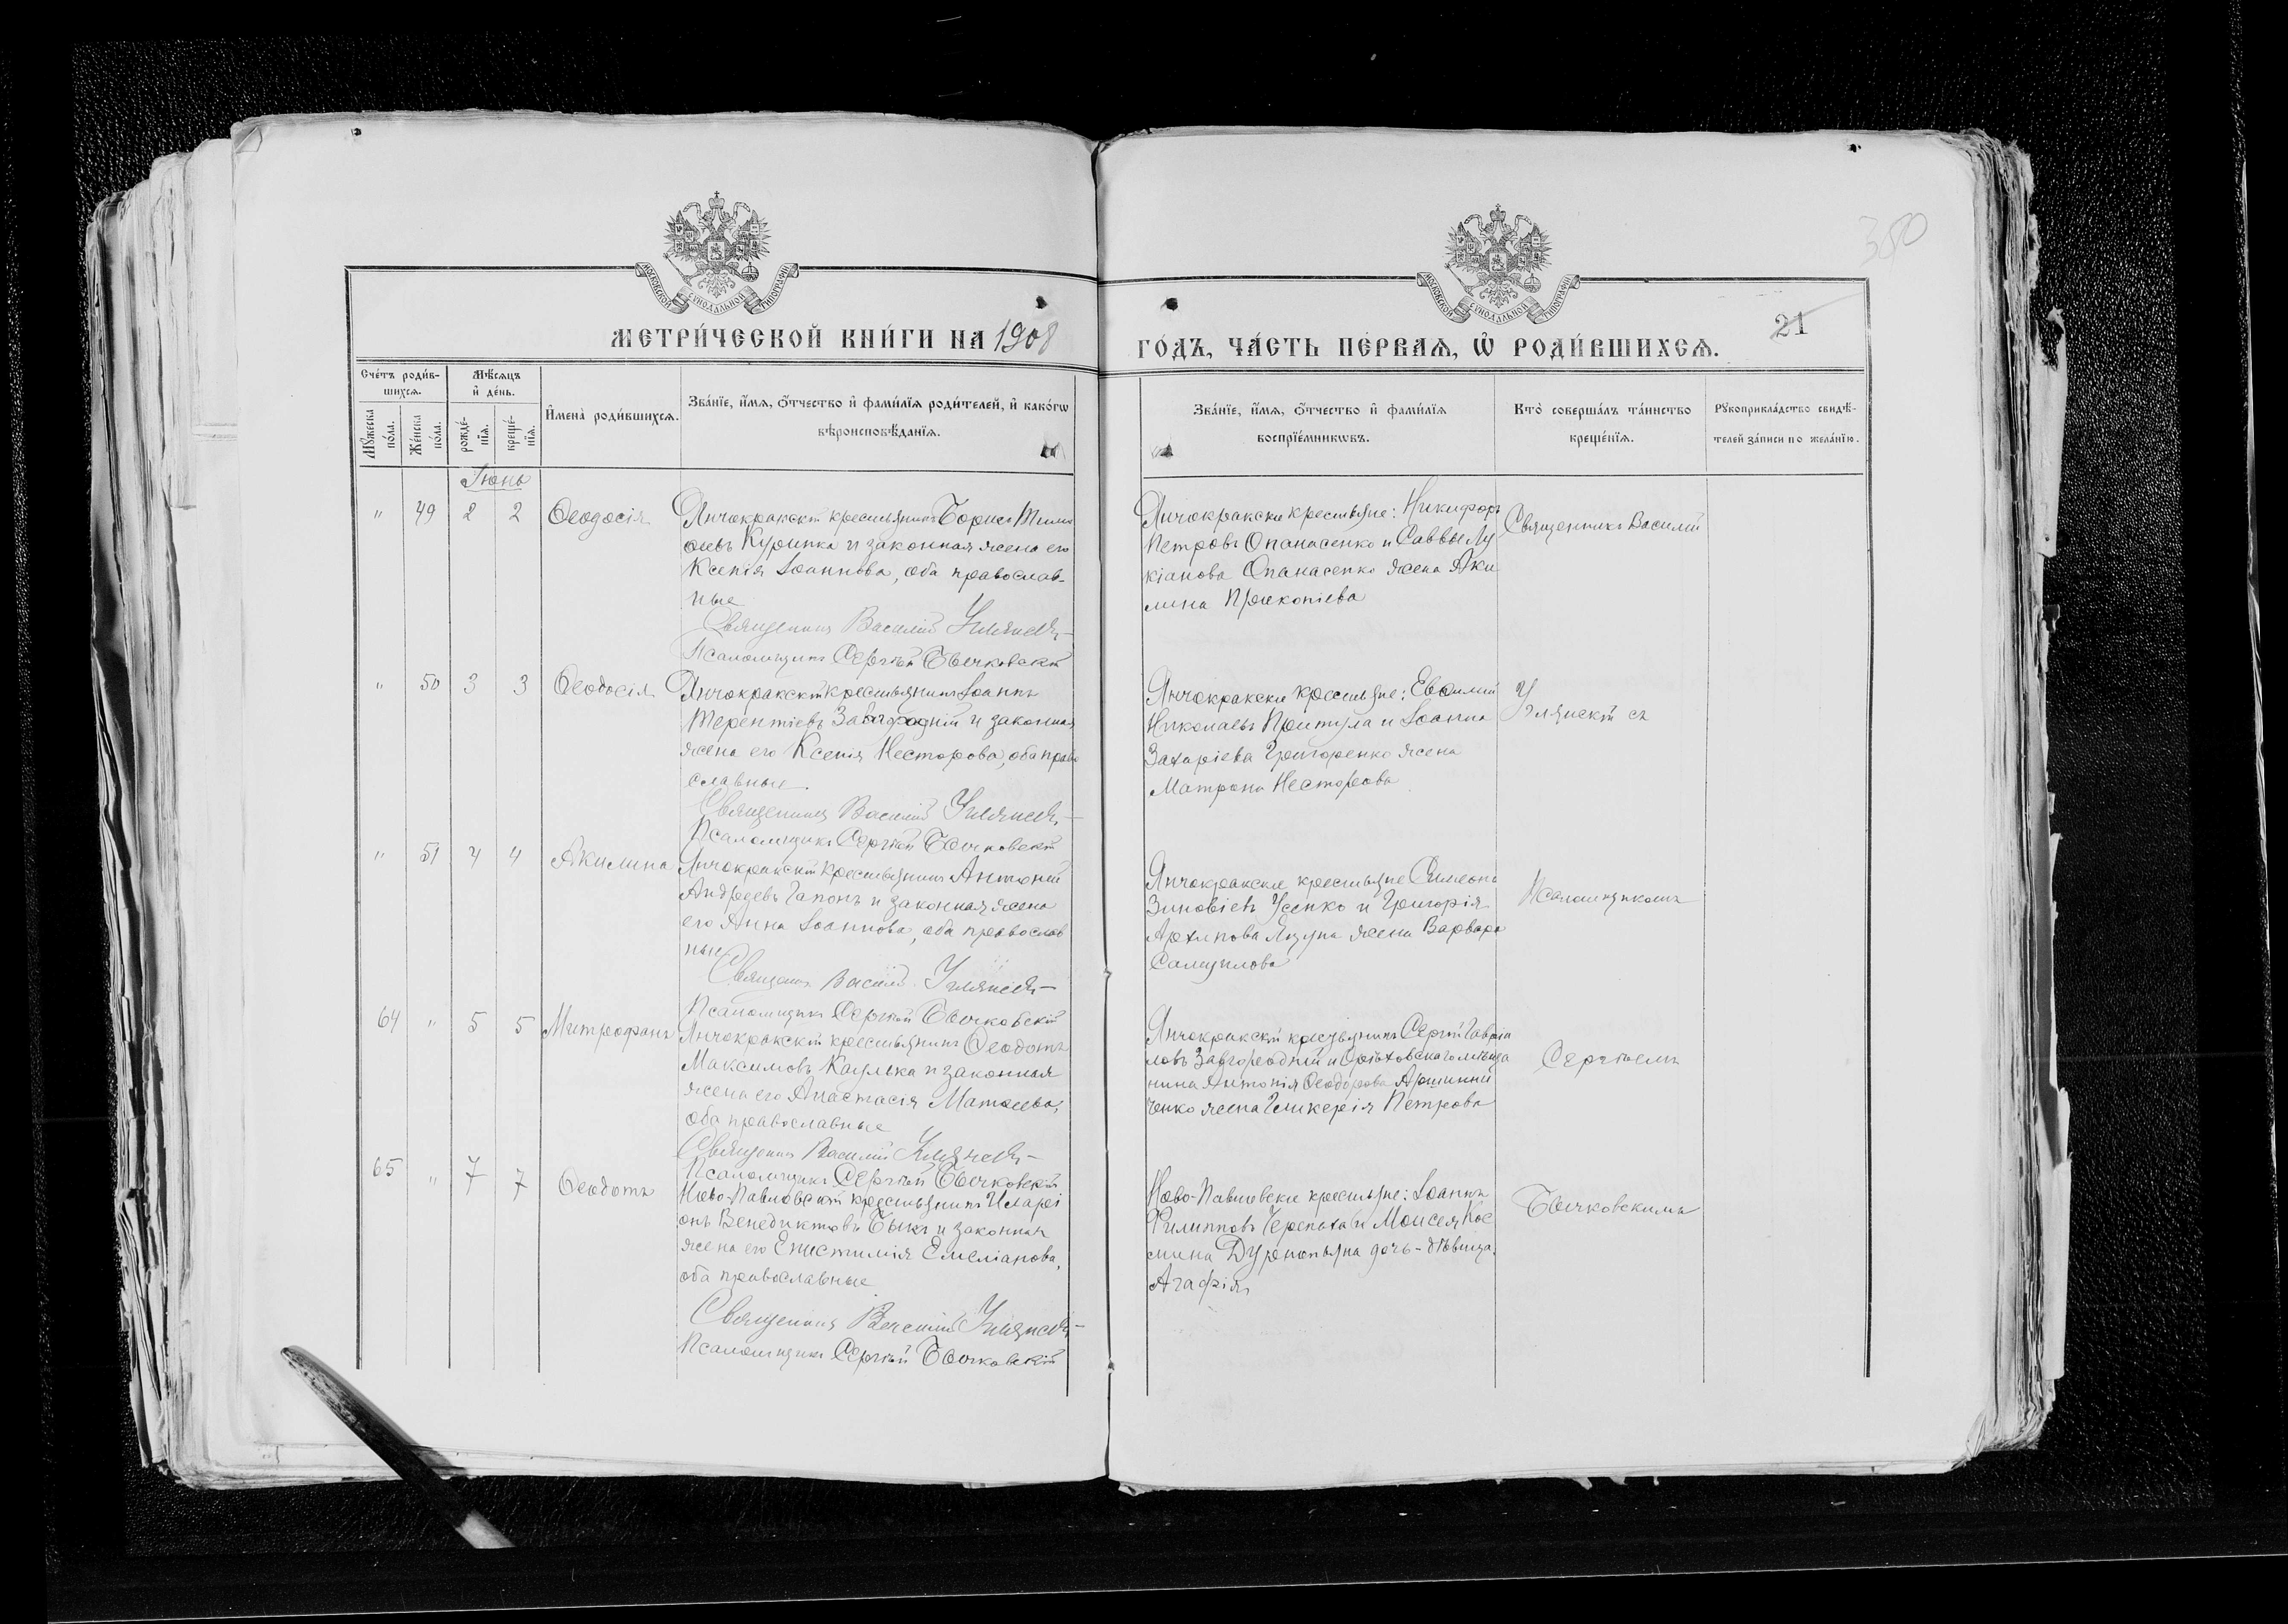 350
МОСКОВСКОЙ СѴНОДАЛЬНОЙ ТИПОГРАФІИ
МОСКОВСКОЙ СѴНОДАЛЬНОЙ ТИПОГРАФІИ
21
МЕТРИ́ЧЕСКОЙ КНИ́ГИ НА 1908 ГО́ДЪ, ЧА́СТЬ ПЕ́РВАѦ, Ѡ҆ РОДИ́ВШИХСѦ.
Сче́тъ роди́вшихсѧ.
Мꙋ́жеска по́ла.
Же́нска по́ла.
Мѣ́сѧцъ и҆ де́нь.
рожде́-нїѧ.
креще́-нїѧ.
И҆мена̀ роди́вшихсѧ.
Зва́нїе, и҆́мѧ, ѻ҆́тчество и҆ фами́лїѧ роди́телей, и҆ како́гѡ
вѣроисповѣ́данїѧ.
Зва́нїе, и҆́мѧ, ѻ҆́тчество и҆ фами́лїѧ
воспрїе́мникѡвъ.
Кто̀ соверша́лъ та́инство
креще́нїѧ.
Рꙋкоприкла́дство свидѣ́-
телей за́писи по жела́нїю.
Іюнь
" 49 2 2 Ѳеодосія
Янчокракскій крестьянинъ Борисъ Тимо
ѳеевъ Курипка и законная жена его
Ксенія Іоаннова, оба православ-
ные
Священникъ Василій
Псаломщикъ Сергій Бычковскій
Янчокракские крестьяне: Никифоръ
Петровъ Опанасенко и Саввы Лу
кіанова Опанасенко жена Аки
лина Прокопіева
Священникъ Василій
" 50 3 3 Ѳеодосія
Янчокракскій крестьянинъ Іоаннъ
Терентіевъ Завгородній и законная
жена его Ксенія Несторова, оба право
славные.
Священникъ Василій
Псаломщикъ Сергій Бычковскій
Янчокракские крестьяне: Евѳимій
Николаевъ Притула и Іоанна
Захаріева Григоренко жена
Матрона Несторова
съ
" 51 4 4 Акилина
Янчокракскій крестьянинъ Антоній
Андреевъ Гапонъ и законная жена
его Анна Іоаннова, оба православ
ные
Священникъ Василій
Псаломщикъ Сергій Бычковскій
Янчокракские крестьяне Симеонъ
Зиновіевъ Усенко и Григорія
Архипова Ягупа жена Варвара
Самуилова
Псаломщикомъ
64 " 5 5 Митрофанъ
Янчокракскій крестьянинъ Ѳеодотъ
Максимовъ и законная
жена его Анастасія Матѳеева,
оба православные
Священникъ Василій
Псаломщикъ Сергій Бычковскій
Янчокракскій крестьянинъ Сергій Гаврии
ловъ Завгородній и Орѣховскаго мѣща
нина Антонія Ѳеодорова Аршинни
ченко жена Гликерія Петрова
Сергіемъ
65 " 7 7 Ѳеодотъ
Ново-Павловскій крестьянинъ Иларі
онъ Венедиктовъ Быкъ и законная
жена его Епистимія Емеліанова,
оба православные
Священникъ Василій
Псаломщикъ Сергій Бычковскій
Ново-Павловские крестьяне: Іоаннъ
Филипповъ Черепаха и Моисея Кос
мина дочь-дѣвица
Агафія
Бычковскимъ